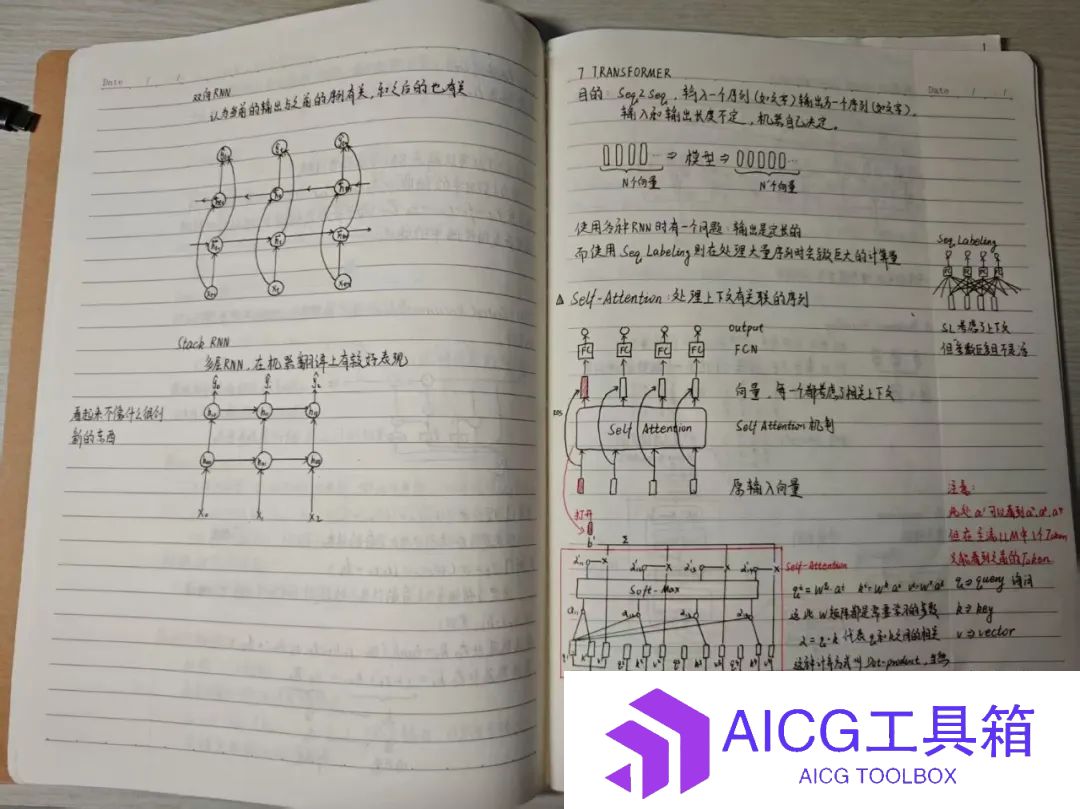 Date / /
双向RNN
认为当前的输出与之前的序列有关,和之后的也有关
Stack RNN
多层RNN,在机器翻译上有较好表现
看起来不像什么很创
新的东西
X₀ X₁ X₂
1
7 TRANSFORMER
Date / /
目的: Seq2Seq, 输入一个序列(如文字)输出另一个序列(如文字),
输入和输出长度不定,机器自己决定。
⇒ 模型 ⇒
N个向量 N'个向量
使用各种RNN时有一个问题:输出是定长的
而使用Seq Labeling则在处理大量序列时会致巨大的计算量
Seq Labeling
FC FC FC FC
SL考虑了上下文
但参数
△ Self-Attention:处理上下文有关联的序列
output
FC FC FC FC FCN
向量,每一个都考虑了相关上下文
Self Attention Self Attention 机制
原输入向量
注意:
打开
但在主流LLM中1个Token
只能看到之前的Token
Self-Attention
Soft-Max
q⇒query 询问
这些W矩阵都是需要学习的参数
k⇒key
α=q·k 代表q和k之间的相关
v⇒vector
这种计算方式叫Dot-product,
AICG工具箱
AICG TOOLBOX